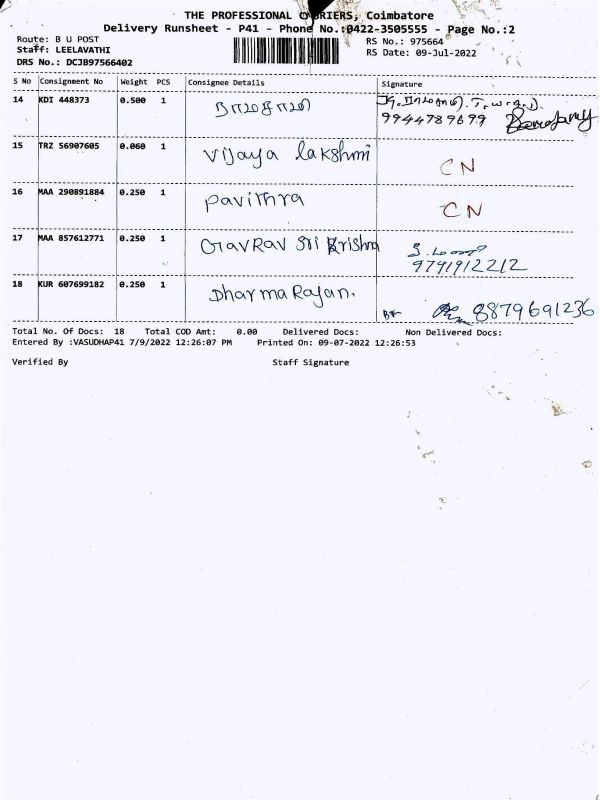 THE PROFESSIONAL COURIERS, Coimbatore
Delivery Runsheet - P41 - Phone No.:0422-3505555 - Page No.:2
Route: B U POST
RS No.: 975664
Staff: LEELAVATHI
RS Date: 09-Jul-2022
DRS No.: DCJB97566402
S No Consignment No Weight PCS Consignee Details Signature
14 KDI 448373 0.500 1
9944789699
15 TRZ 56907605 0.060 1 Vijaya lakshmi CN
16 MAA 290891884 0.250 1 pavithra CN
17 MAA 857612771 0.250 1 Gavrav sri krishna
9791912212
18 KUR 607699182 0.250 1 Dharma Rajan. 8879691236
Total No. Of Docs: 18 Total COD Amt: 0.00 Delivered Docs: Non Delivered Docs:
Entered By :VASUDHAP41 7/9/2022 12:26:07 PM Printed On: 09-07-2022 12:26:53
Verified By Staff Signature